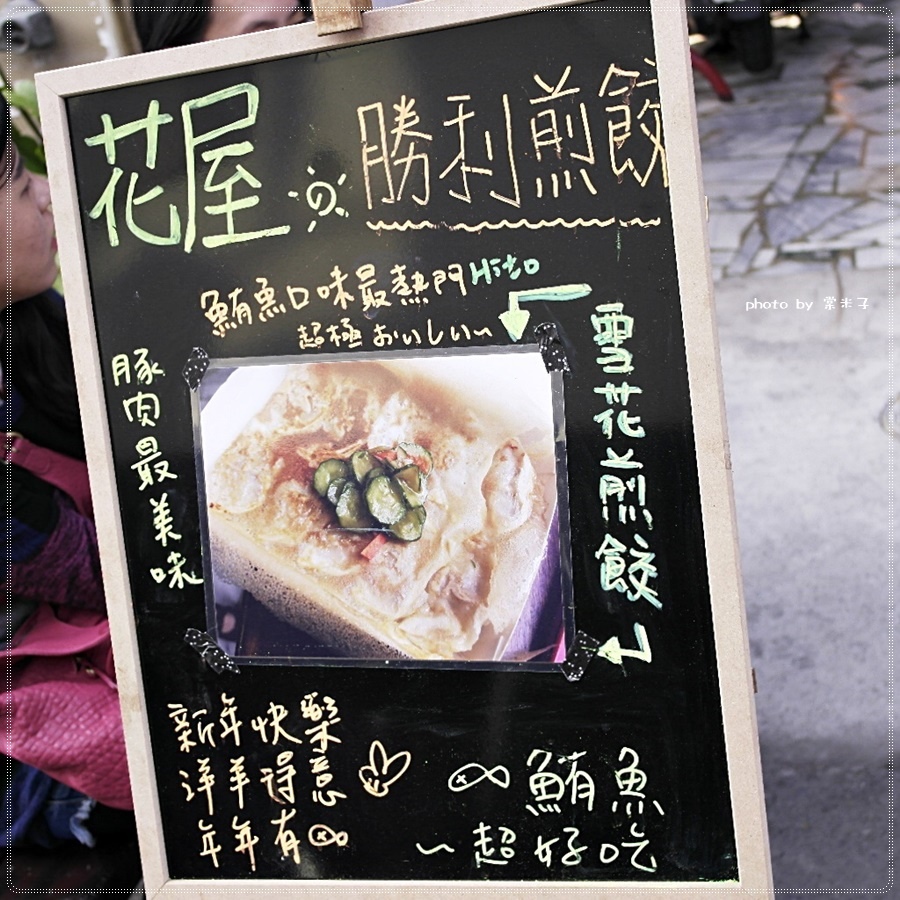 花屋
勝利煎餃
鮪魚口味最熱門Hito
超極おいしい~
雪花煎餃
豚肉最美味
新年快樂
洋羊得意
年年有
鮪魚
~超好吃
photo by 棠米子